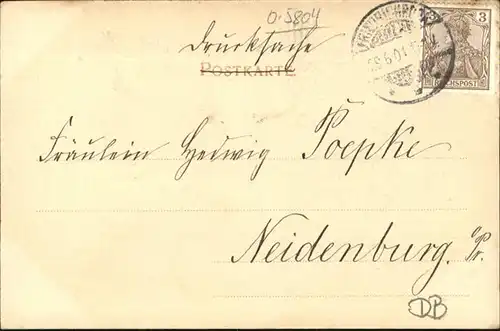 0.5804
Drucksache
POSTKARTE
3
REICHSPOST
Fräulein Hedwig Poepke
Neidenburg. o/Pr.
DB